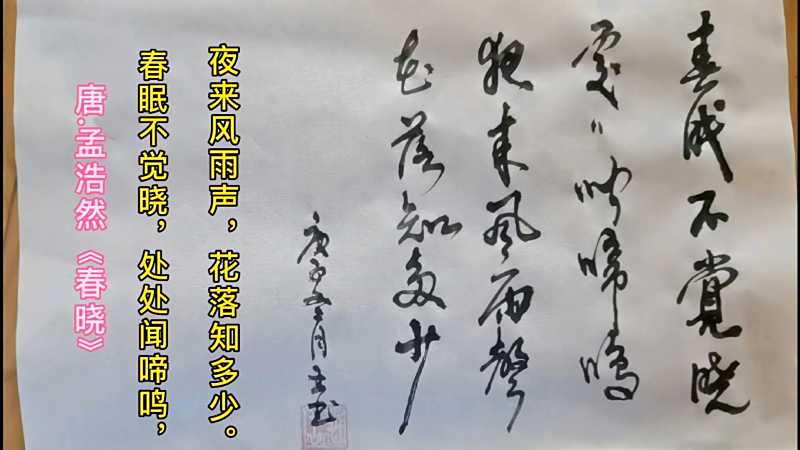 春眠不覺曉
處〃聞啼鳴
夜來風雨聲
花落知多少
庚子五月
唐·孟浩然《春晓》
春眠不觉晓，处处闻啼鸣，
夜来风雨声，花落知多少。